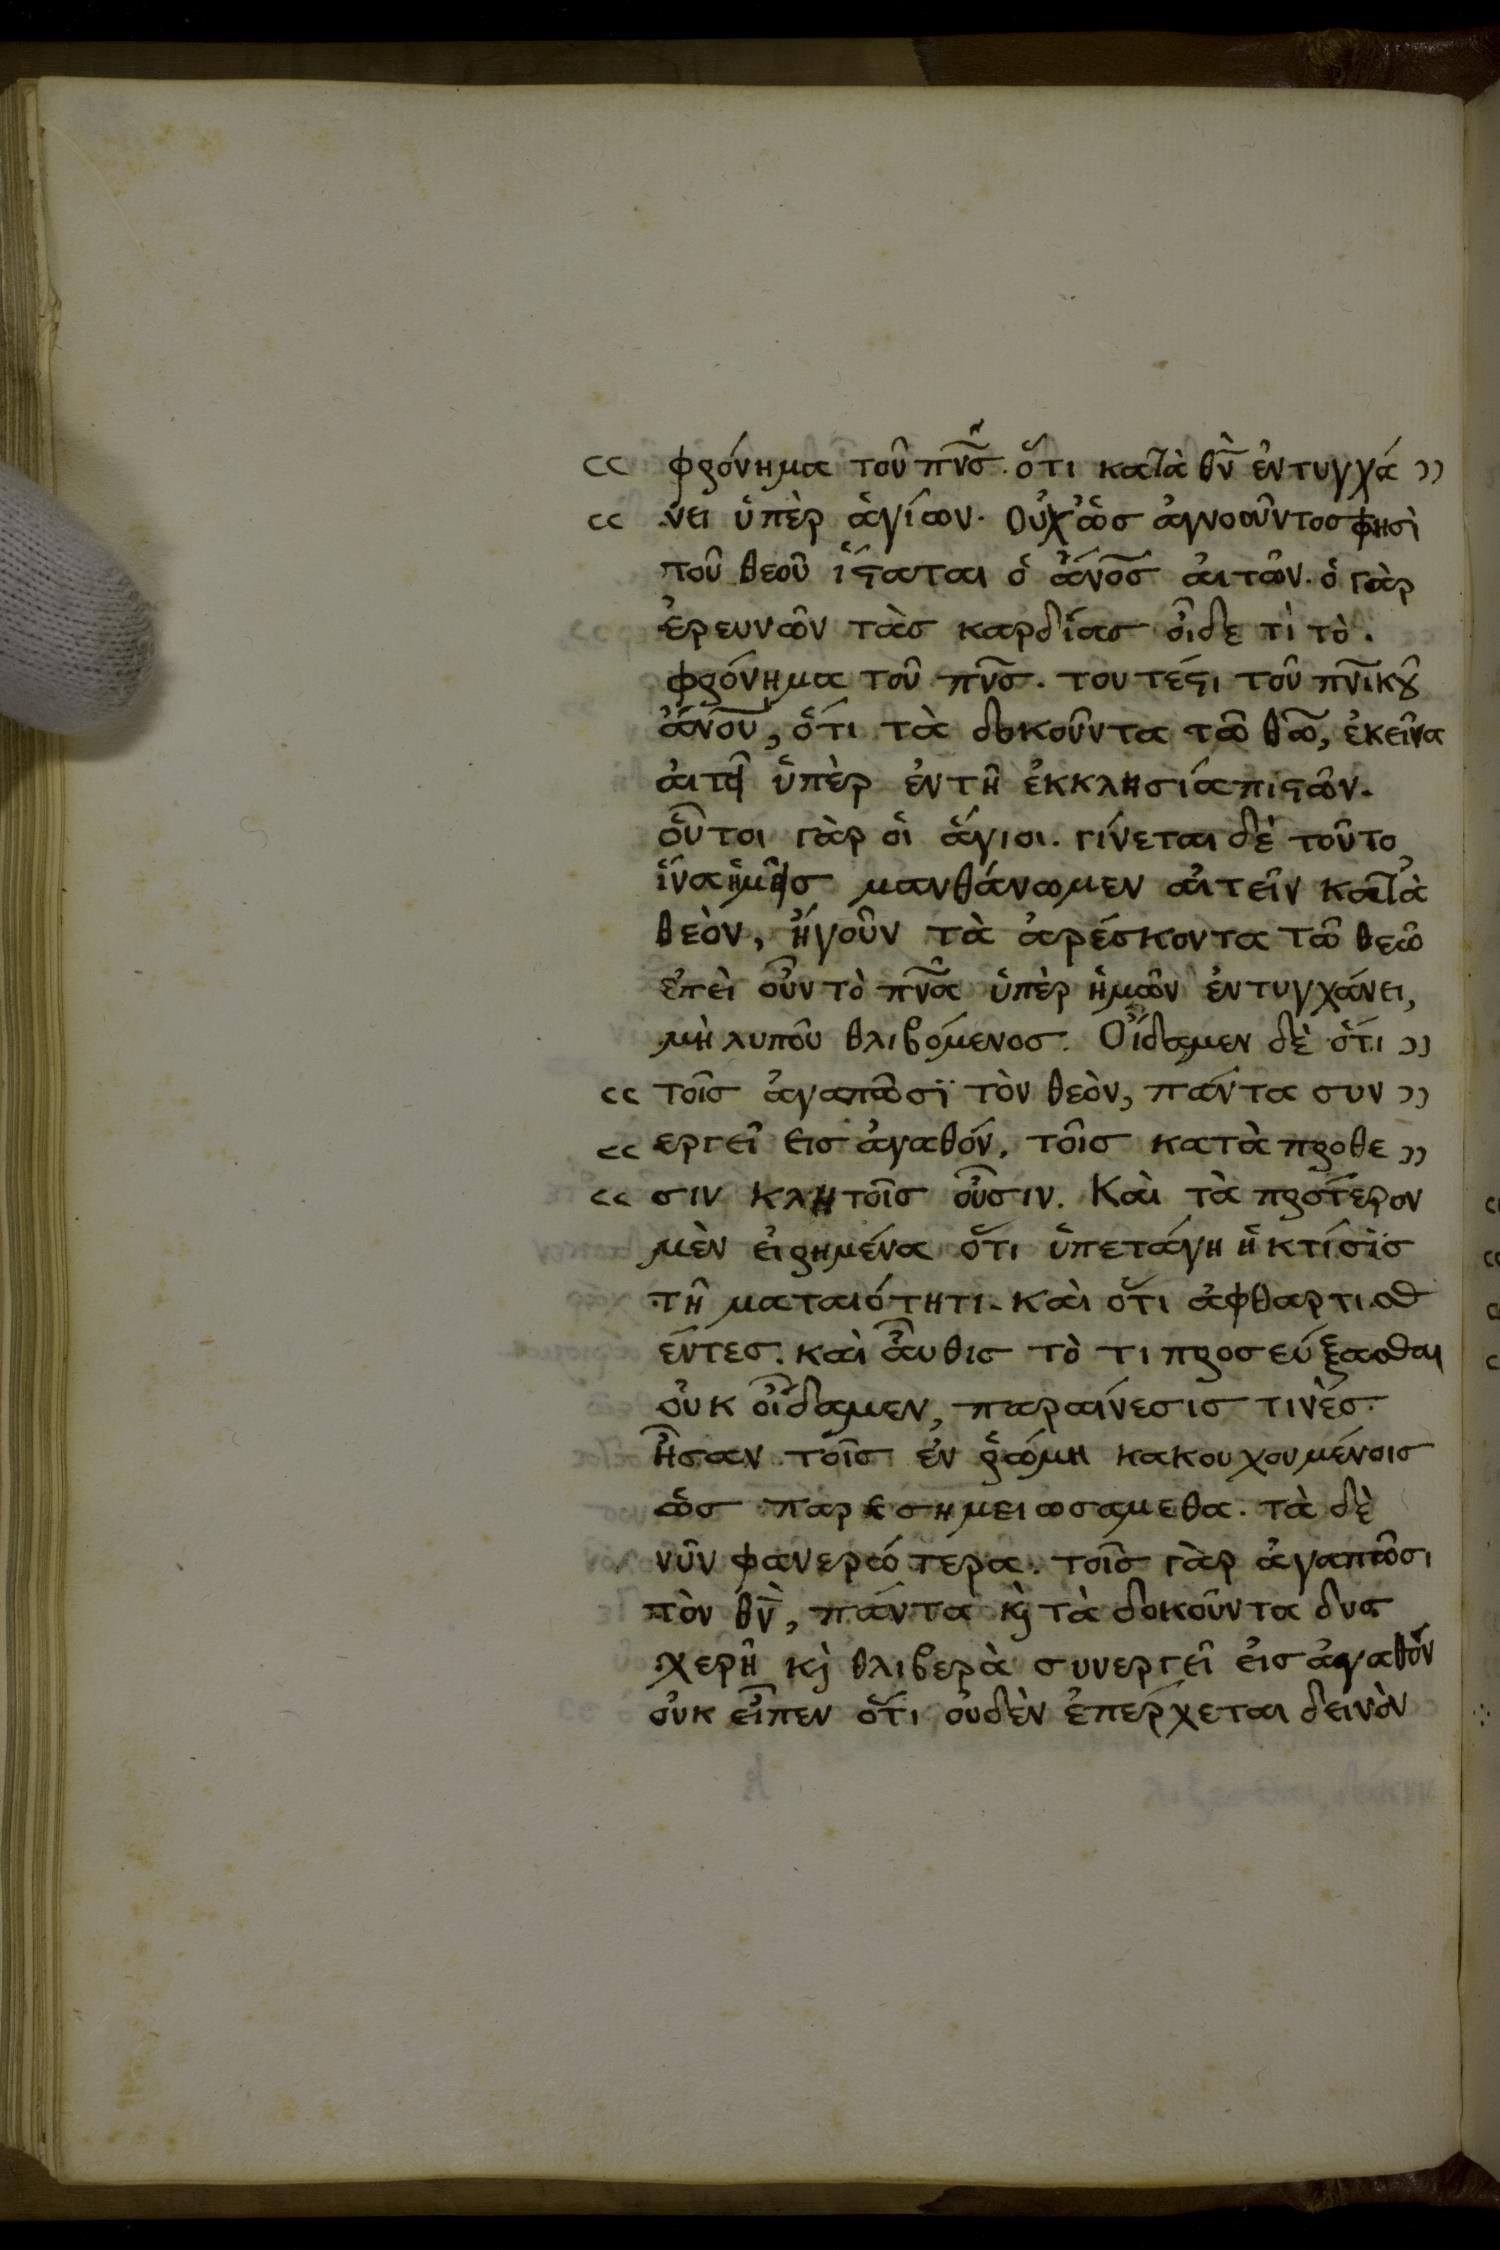 φρόνημα τοῦ πν̅ς. ὅτι κατὰ θν̅ ἐντυγχά
νει ὑπὲρ ἁγίων. Οὐχ ὡς ἀγνοοῦντος φησὶ
τοῦ θεοῦ ἵσταται ὁ ἄν̅ος αἰτῶν. ὁ γὰρ
ἐρευνῶν τὰς καρδίας οἶδε τὶ τὸ.
φρόνημα τοῦ πν̅ς. τουτέστι τοῦ πν̅ικοῦ
ἀν̅ου, ὅτι τὰ δοκοῦντα τῶ θω̅, ἐκεῖνα
αἰτεῖ ὑπὲρ ἐν τῆ ἐκκλησία πιστῶν.
οὗτοι γὰρ οἱ ἅγιοι. γίνεται δὲ τοῦτο
ἵνα ἡμεῖς μανθάνωμεν αἰτεῖν κατὰ
θεὸν, ἤγουν τὰ ἀρέσκοντα τῶ θεῶ
ἐπεὶ οὖν τὸ πν̅α ὑπὲρ ἡμῶν ἐντυγχάνει,
μὴ λυποῦ θλιβόμενος. Οἴδαμεν δὲ ὅτι
τοῖς ἀγαπῶσϊ τὸν θεὸν, πάντα συν
εργεῖ εἰς ἀγαθόν, τοῖς κατὰ προθε
σιν κλητοῖς οὖσιν. Καὶ τὰ πρότερον
μὲν εἰρημένα ὅτι ὑπετάγη ἡ κτίσις
τῆ ματαιότητι. καὶ ὅτι ἀφθαρτισθ
έντες. καὶ αὖθις τὸ τι προσεύξασθαι
οὐκ οἴδαμεν, παραίνεσις τινὲς.
ἦσαν τοῖς ἐν ῥώμη κακουχουμένοις
ὡς παρεσημειωσαμεθα. τὰ δὲ
νῦν φανερώτερα. τοῖς γὰρ ἀγαπῶσι
τὸν θν̅, πάντα κὶ τὰ δοκοῦντα δυσ
χερῆ κὶ θλιβερὰ συνεργεῖ εἰς ἀγαθόν
οὐκ εἶπεν ὅτι οὐδὲν ἐπέρχεται δεινὸν